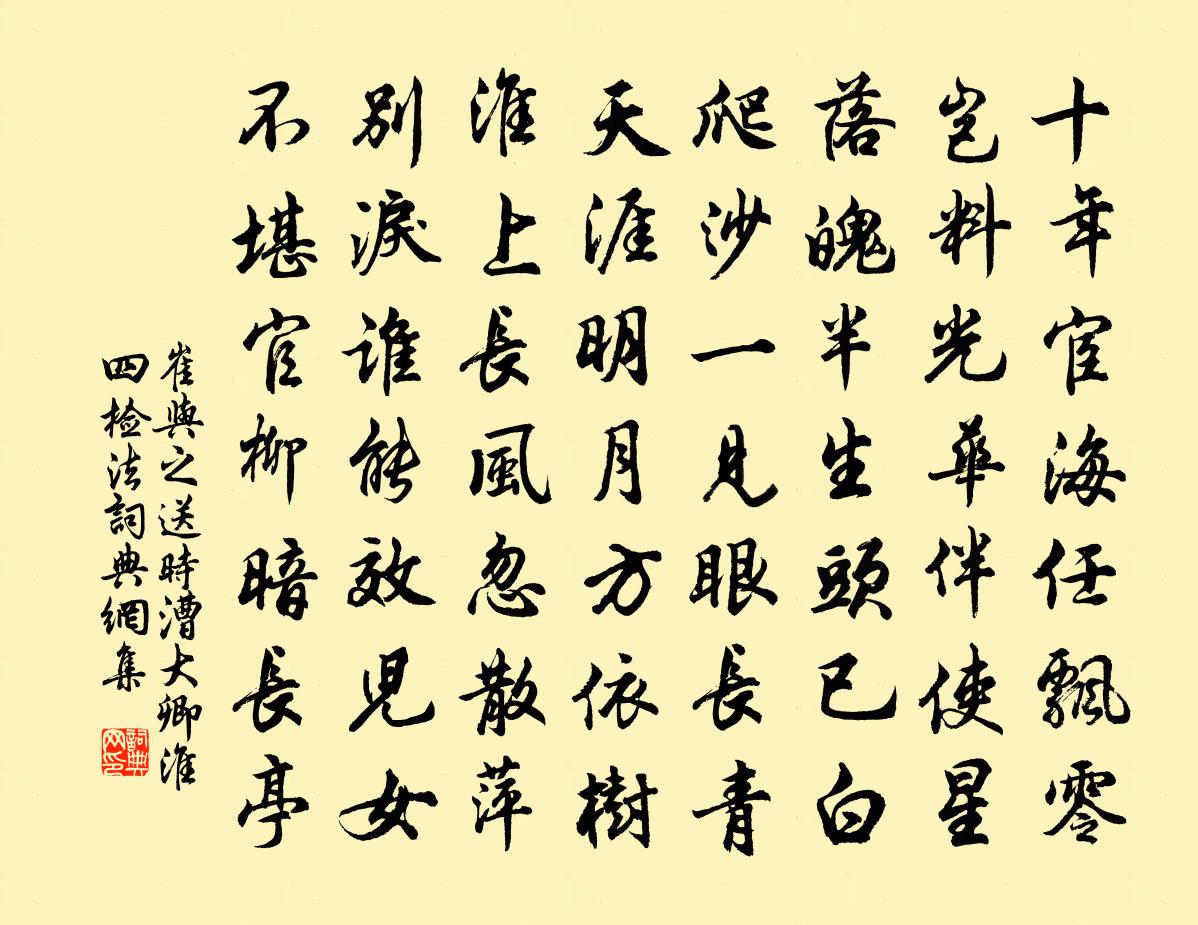 十年宦海任飄零
豈料光華伴使星
落魄半生頭已白
爬沙一見眼長青
天涯明月方依樹
淮上長風忽散萍
別淚誰能效兒女
不堪官柳暗長亭
崔與之送時漕大卿淮
四檢法詞典網集
詞典網印